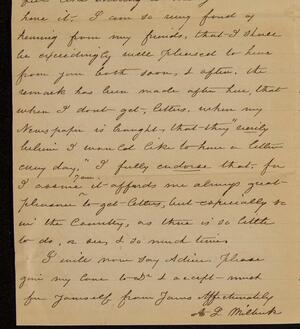 have it. I am so very fond of
hearing from my friends, that I shall
be exceedingly well pleased to hear
from you both soon, & often, the
remark has been made often here, that
when I dont get letters, when my
Newspaper is brought, that they "verily
believe I would like to have a letter
every day," I fully endorse that, for
I assure you it affords me always great
pleasure to get letters, but especially so
in the Country, as there is so little
to do, or see, & so much time.
I will now say Adieu. Please
give my love to Dr & accept much
for yourself from Yours Affectionately
L Milbank